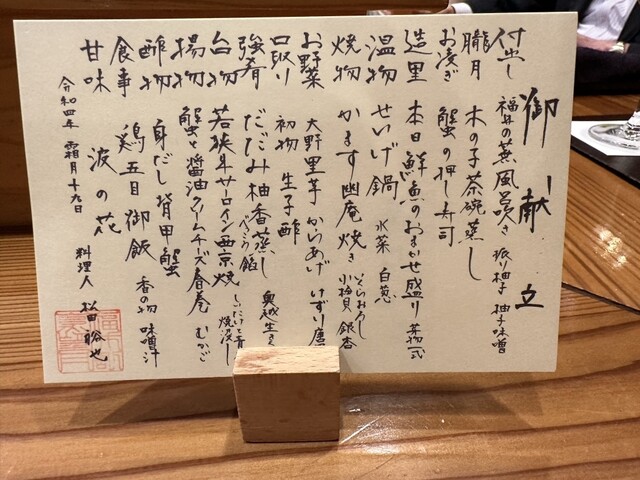 御献立
付出し 福井の蕪風呂吹き 振り柚子 柚子味噌
朧月 木の子茶碗蒸し
お凌ぎ 蟹の押し寿司
造里 本日鮮魚のおまかせ盛り 芽物一式
温物 せいげ鍋 水菜 白葱
焼物 かます幽庵焼き いくらおろし 小梅貝 銀杏
お野菜 大野里芋からあげ けずり唐
口取り 初物 生子酢
強肴 だいだみ柚香蒸し べっこう餡 奥越生
台物 若狭牛サロイン西京焼 しいたけと 焼浸し
揚物 蟹と醤油クリームチーズ春巻 むかご
酢物 身だし 背甲蟹
食事 鶏五目御飯 香の物 味噌汁
甘味 波の花
令和四年 霜月十九日 料理人 松田 裕也